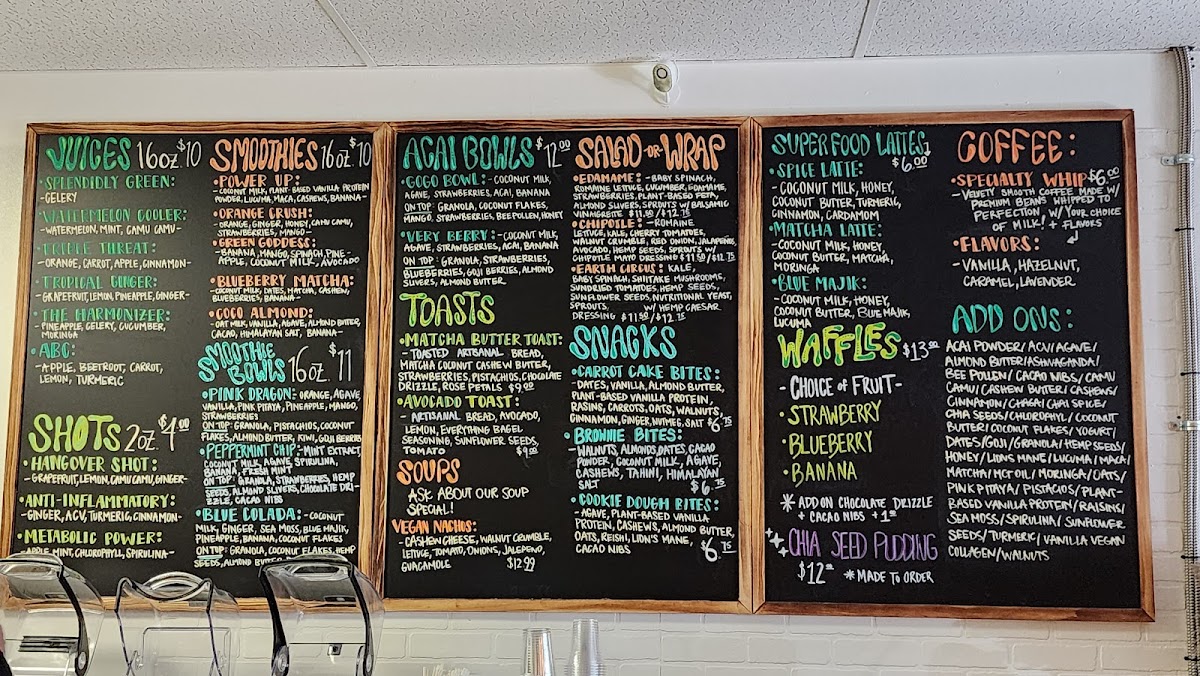 JUICES 16oz $10
• SPLENDIDLY GREEN:
- CELERY
• WATERMELON COOLER:
- WATERMELON, MINT, CAMU CAMU -
• TRIPLE THREAT:
- ORANGE, CARROT, APPLE, CINNAMON -
• TROPICAL GINGER:
- GRAPEFRUIT, LEMON, PINEAPPLE, GINGER -
• THE HARMONIZER:
- PINEAPPLE, CELERY, CUCUMBER,
MORINGA
• ABC:
- APPLE, BEETROOT, CARROT,
LEMON, TURMERIC
SHOTS 2oz $4.00
• HANGOVER SHOT:
- GRAPEFRUIT, LEMON, CAMU CAMU, GINGER -
ANTI-INFLAMMATORY:
- GINGER, ACV, TURMERIC, CINNAMON -
• METABOLIC POWER:
- APPLE, MINT, CHLOROPHYLL, SPIRULINA -
SMOOTHIES 16oz. $10
• POWER UP:
- COCONUT MILK, PLANT-BASED VANILLA PROTEIN
POWDER, LUCUMA, MACA, CASHEWS, BANANA -
• ORANGE CRUSH:
- ORANGE, GINGER, HONEY, CAMU CAMU,
STRAWBERRIES, MANGO -
• GREEN GODDESS:
- BANANA, MANGO, SPINACH, PINE-
APPLE, COCONUT MILK, AVOCADO
• BLUEBERRY MATCHA:
- COCONUT MILK, DATES, MATCHA, CASHEW,
BLUEBERRIES, BANANA -
• COCO ALMOND:
- OAT MILK, VANILLA, AGAVE, ALMOND BUTTER,
CACAO, HIMALAYAN SALT, BANANA -
SMOOTHIE
BOWLS 16oz. $11
• PINK DRAGON: - ORANGE, AGAVE,
VANILLA, PINK PITAYA, PINEAPPLE, MANGO,
STRAWBERRIES
ON TOP: GRANOLA, PISTACHIOS, COCONUT
FLAKES, ALMOND BUTTER, KIWI, GOJI BERRIES
• PEPPERMINT CHIP: - MINT EXTRACT,
COCONUT MILK, AGAVE, SPIRULINA,
BANANA, FRESH MINT
ON TOP: GRANOLA, STRAWBERRIES, HEMP
SEEDS, ALMOND SLIVERS, CHOCOLATE DRI-
ZZLE, CACAO NIBS
• BLUE COLADA: - COCONUT
MILK, GINGER, SEA MOSS, BLUE MAJIK,
PINEAPPLE, BANANA, COCONUT FLAKES
ON TOP: GRANOLA, COCONUT FLAKES, HEMP
SEEDS, ALMOND
ACAI BOWLS $12.00
• GOGO BOWL: - COCONUT MILK,
AGAVE, STRAWBERRIES, ACAI, BANANA
ON TOP: GRANOLA, COCONUT FLAKES,
MANGO, STRAWBERRIES, BEE POLLEN, HONEY
• VERY BERRY: - COCONUT MILK,
AGAVE, STRAWBERRIES, ACAI, BANANA
ON TOP: GRANOLA, STRAWBERRIES,
BLUEBERRIES, GOJI BERRIES, ALMOND
SLIVERS, ALMOND BUTTER
TOASTS
• MATCHA BUTTER TOAST:
- TOASTED ARTISANAL BREAD,
MATCHA COCONUT CASHEW BUTTER,
STRAWBERRIES, PISTACHIOS, CHOCOLATE
DRIZZLE, ROSE PETALS $9.00
• AVOCADO TOAST:
- ARTISANAL BREAD, AVOCADO,
LEMON, EVERYTHING BAGEL
SEASONING, SUNFLOWER SEEDS,
TOMATO $9.00
SOUPS
ASK ABOUT OUR SOUP
SPECIAL!
VEGAN NACHOS:
- CASHEW CHEESE, WALNUT CRUMBLE,
LETTUCE, TOMATO, ONIONS, JALEPENO,
GUACAMOLE $12.99
SALAD -OR- WRAP
• EDAMAME: - BABY SPINACH,
ROMAINE LETTUCE, CUCUMBER, EDAMAME,
STRAWBERRIES, PLANT-BASED FETA,
ALMOND SLIVERS, SPROUTS W/ BALSAMIC
VINAIGRETTE $11.50/$12.75
• CHIPOTLE: - ROMAINE
LETTUCE, KALE, CHERRY TOMATOES,
WALNUT CRUMBLE, RED ONION, JALAPEÑOS,
AVOCADO, HEMP SEEDS, SPROUTS W/
CHIPOTLE MAYO DRESSING $11.50/$12.75
• EARTH CIRCUS: KALE,
BABY SPINACH, SHIITAKE MUSHROOMS,
SUNDRIED TOMATOES, HEMP SEEDS,
SUNFLOWER SEEDS, NUTRITIONAL YEAST,
SPROUTS, W/ HEMP CAESAR
DRESSING $11.50/$12.75
SNACKS
• CARROT CAKE BITES:
- DATES, VANILLA, ALMOND BUTTER,
PLANT-BASED VANILLA PROTEIN,
RASINS, CARROTS, OATS, WALNUTS,
CINNAMON, GINGER, NUTMEG, SALT $6.75
• BROWNIE BITES:
- WALNUTS, ALMONDS, DATES, CACAO
POWDER, COCONUT MILK, AGAVE,
CASHEWS, TAHINI, HIMALAYAN
SALT $6.75
• COOKIE DOUGH BITES:
- AGAVE, PLANT-BASED VANILLA
PROTEIN, CASHEWS, ALMOND BUTTER,
OATS, REISHI, LION'S MANE,
CACAO NIBS $6.75
SUPERFOOD LATTES
$6.00
• SPICE LATTE:
- COCONUT MILK, HONEY,
COCONUT BUTTER, TURMERIC,
CINNAMON, CARDAMOM
• MATCHA LATTE:
- COCONUT MILK, HONEY,
COCONUT BUTTER, MATCHA,
MORINGA
• BLUE MAJIK:
- COCONUT MILK, HONEY,
COCONUT BUTTER, BLUE MAJIK,
LUCUMA
WAFFLES $13.00
- CHOICE OF FRUIT -
• STRAWBERRY
• BLUEBERRY
• BANANA
* ADD ON CHOCOLATE DRIZZLE
+ CACAO NIBS + 1.00
CHIA SEED PUDDING
$12.00 * MADE TO ORDER
COFFEE:
• SPECIALTY WHIP $6.00
- VELVETY SMOOTH COFFEE MADE W/
PREMIUM BEANS WHIPPED TO
PERFECTION W/ YOUR CHOICE
OF MILK! + FLAVORS
• FLAVORS:
- VANILLA, HAZELNUT,
CARAMEL, LAVENDER
ADD ONS:
ACAI POWDER/ ACV/ AGAVE/
ALMOND BUTTER/ ASHWAGANDA/
BEE POLLEN/ CACAO NIBS/ CAMU
CAMU/ CASHEW BUTTER/ CASHEWS/
CINNAMON/ CHAGA/ CHAI SPICE/
CHIA SEEDS/ CHLOROPHYL/ COCONUT
BUTTER/ COCONUT FLAKES/ YOGURT/
DATES/ GOJI/ GRANOLA/ HEMP SEEDS/
HONEY/ LIONS MANE/ LUCUMA/ MACA/
MATCHA/ MCT OIL/ MORINGA/ OATS/
PINK PITAYA/ PISTACIOS/ PLANT-
BASED VANILLA PROTEIN/ RAISINS/
SEA MOSS/ SPIRULINA/ SUNFLOWER
SEEDS/ TURMERIC/ VANILLA VEGAN
COLLAGEN/ WALNUTS